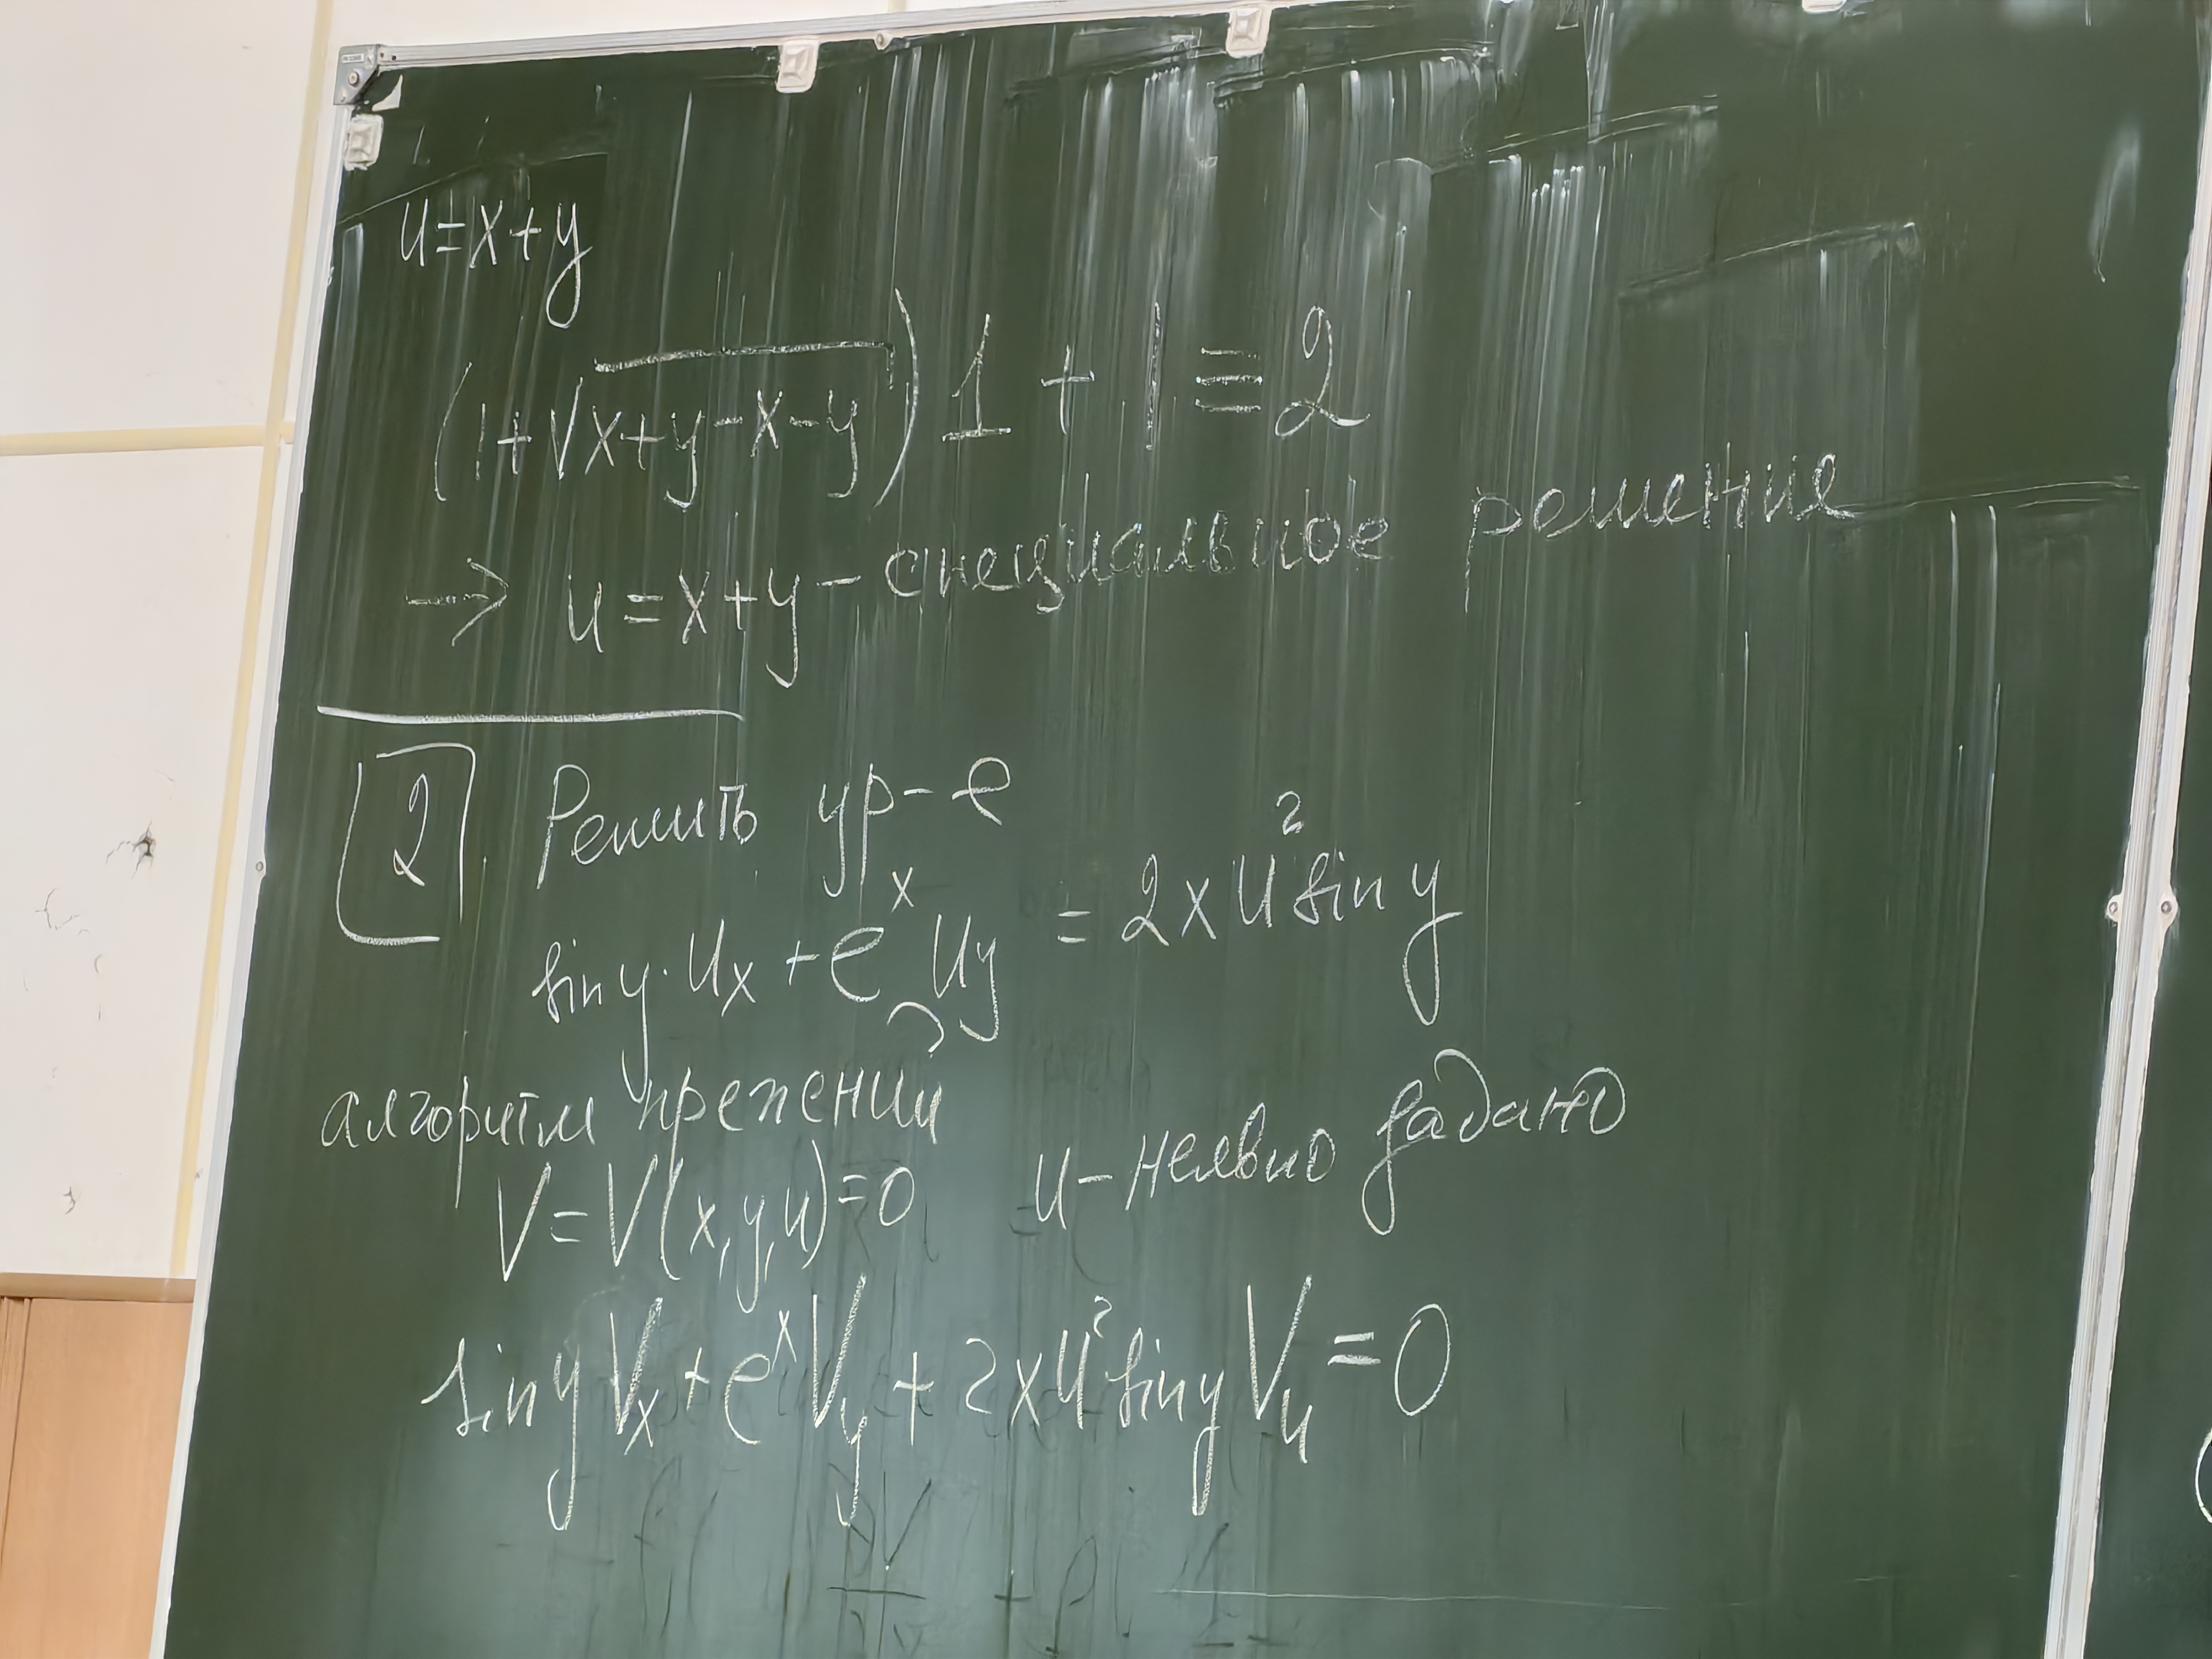 u=x+y
(1+√x+y-x-y)1+1≡2
→ u=x+y-специальное решение
2 Решить ур-е
sin y·uₓ+eˣu_y=2xu²sin y
алгоритм прежний
V=V(x,y,u)=0 u-неявно задано
sin y Vₓ+eˣV_y+2xu²sin y V_u=0